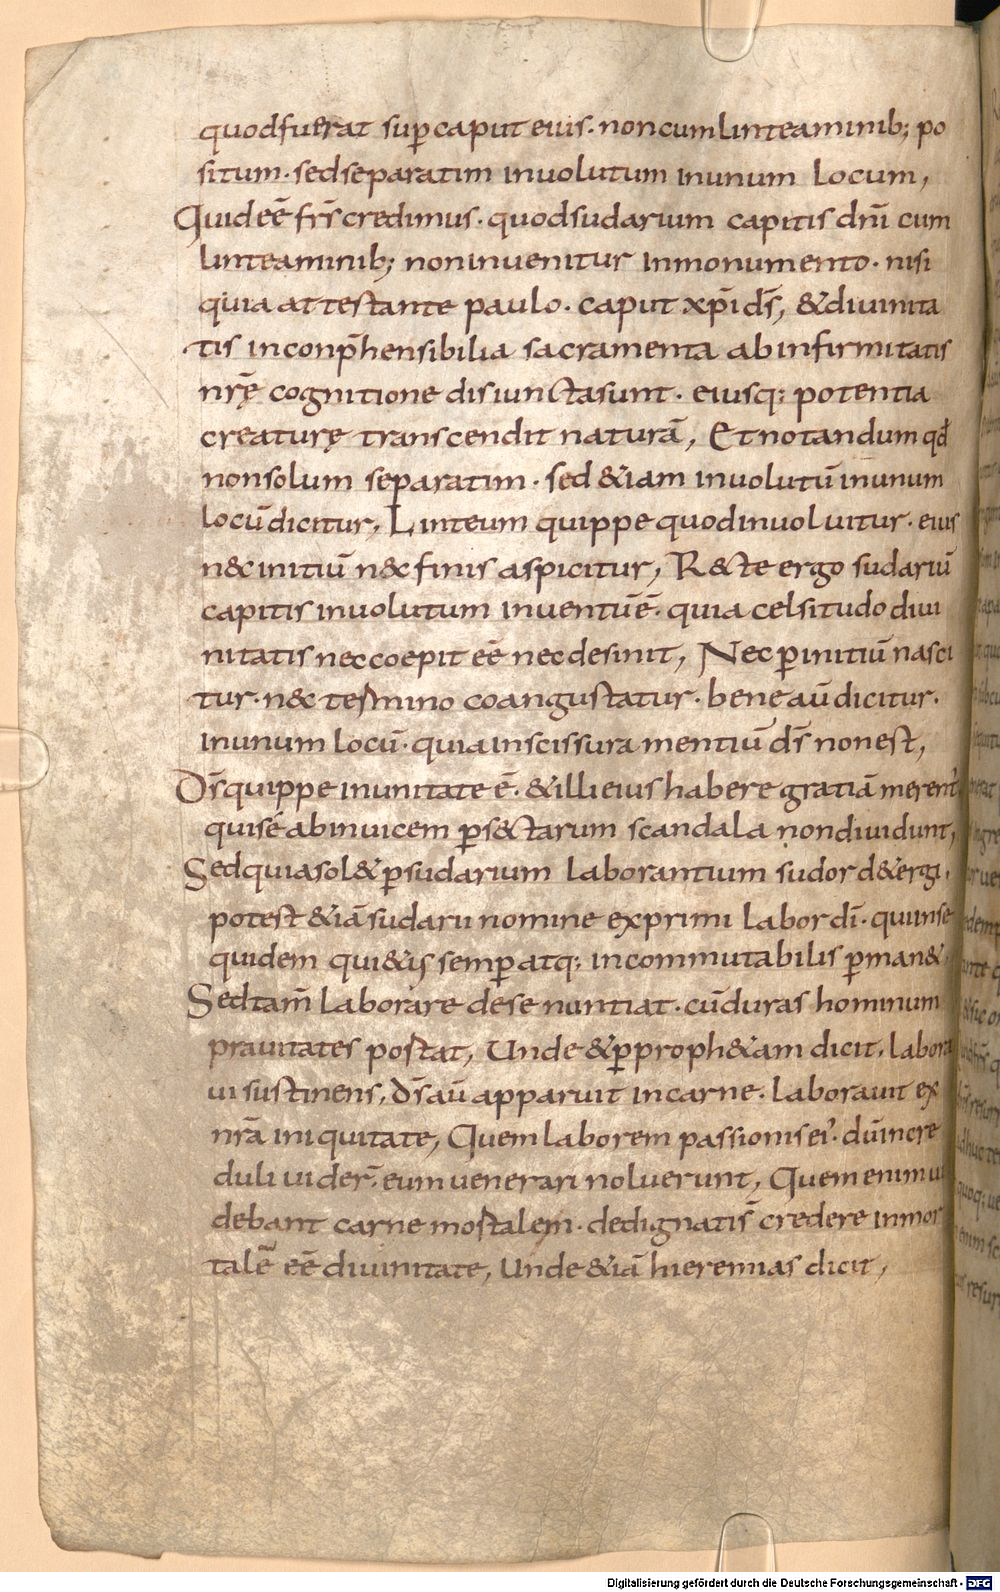 quodfuerat sup̄ caput eius· noncumlinteaminib; po
situm· sedseparatim inuolutum inunum locum,
Quideē frs̄ credimus· quodsudarium capitis dn̄i cum
linteaminib; noninuenitur inmonumento· nisi
quia attestante paulo· caput xp̄i ds̄, &diuinita
tis inconp̄hensibilia sacramenta abinfirmitatis
nrę̄ cognitione disiunctasunt· eiusq: potentia
creaturę transcendit naturā, Et notandum qd̄
nonsolum separatim· sed &iam inuolutū inunum
locū dicitur, Linteum quippe quodinuoluitur· eius
n&c initiū n&c finis aspicitur, R&cte ergo sudariū
capitis inuolutum inuentūē· quia celsitudo diui
nitatis nec coepit eē nec desinit, Nec p̄ initiū nasci
tur· n&c termino coangustatur· bene aū dicitur·
inunum locū· quia inscissura mentiū ds̄ nonest,
Ds̄ quippe inunitate ē· &illi eius habere gratiā merent̄
quisē abinuicem p̄ s&ctarum scandala nondiuidunt,
Sedquiasol& p̄ sudarium laborantium sudor d&ergi,
potest &iā sudarii nomine exprimi labor dī· quiinse
quidem qui&is semp̄ atq; incommutabilis p̄man&,
Sedtam̄ laborare dese nuntiat· cū duras hominum
prauitates portat, Unde &p̄ proph&am dicit, labora
ui sustinens, ds̄ aū apparuit incarne· laborauit ex
nr̄a iniquitate, Quem laborem passionis ei᾽· dū incre
duli uider̄· eum uenerari noluerunt, Quem enim ui
debant carne mortalem· dedignatis̄ credere inmor
talē eē diuinitate, Unde &iā hieremias dicit,
Digitalisierung gefördert durch die Deutsche Forschungsgemeinschaft - DFG